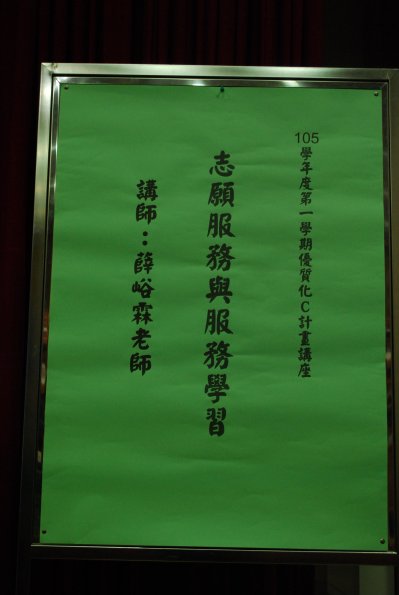 105學年度第一學期優質化C計畫講座
志願服務與服務學習
講師：薛峪霖老師